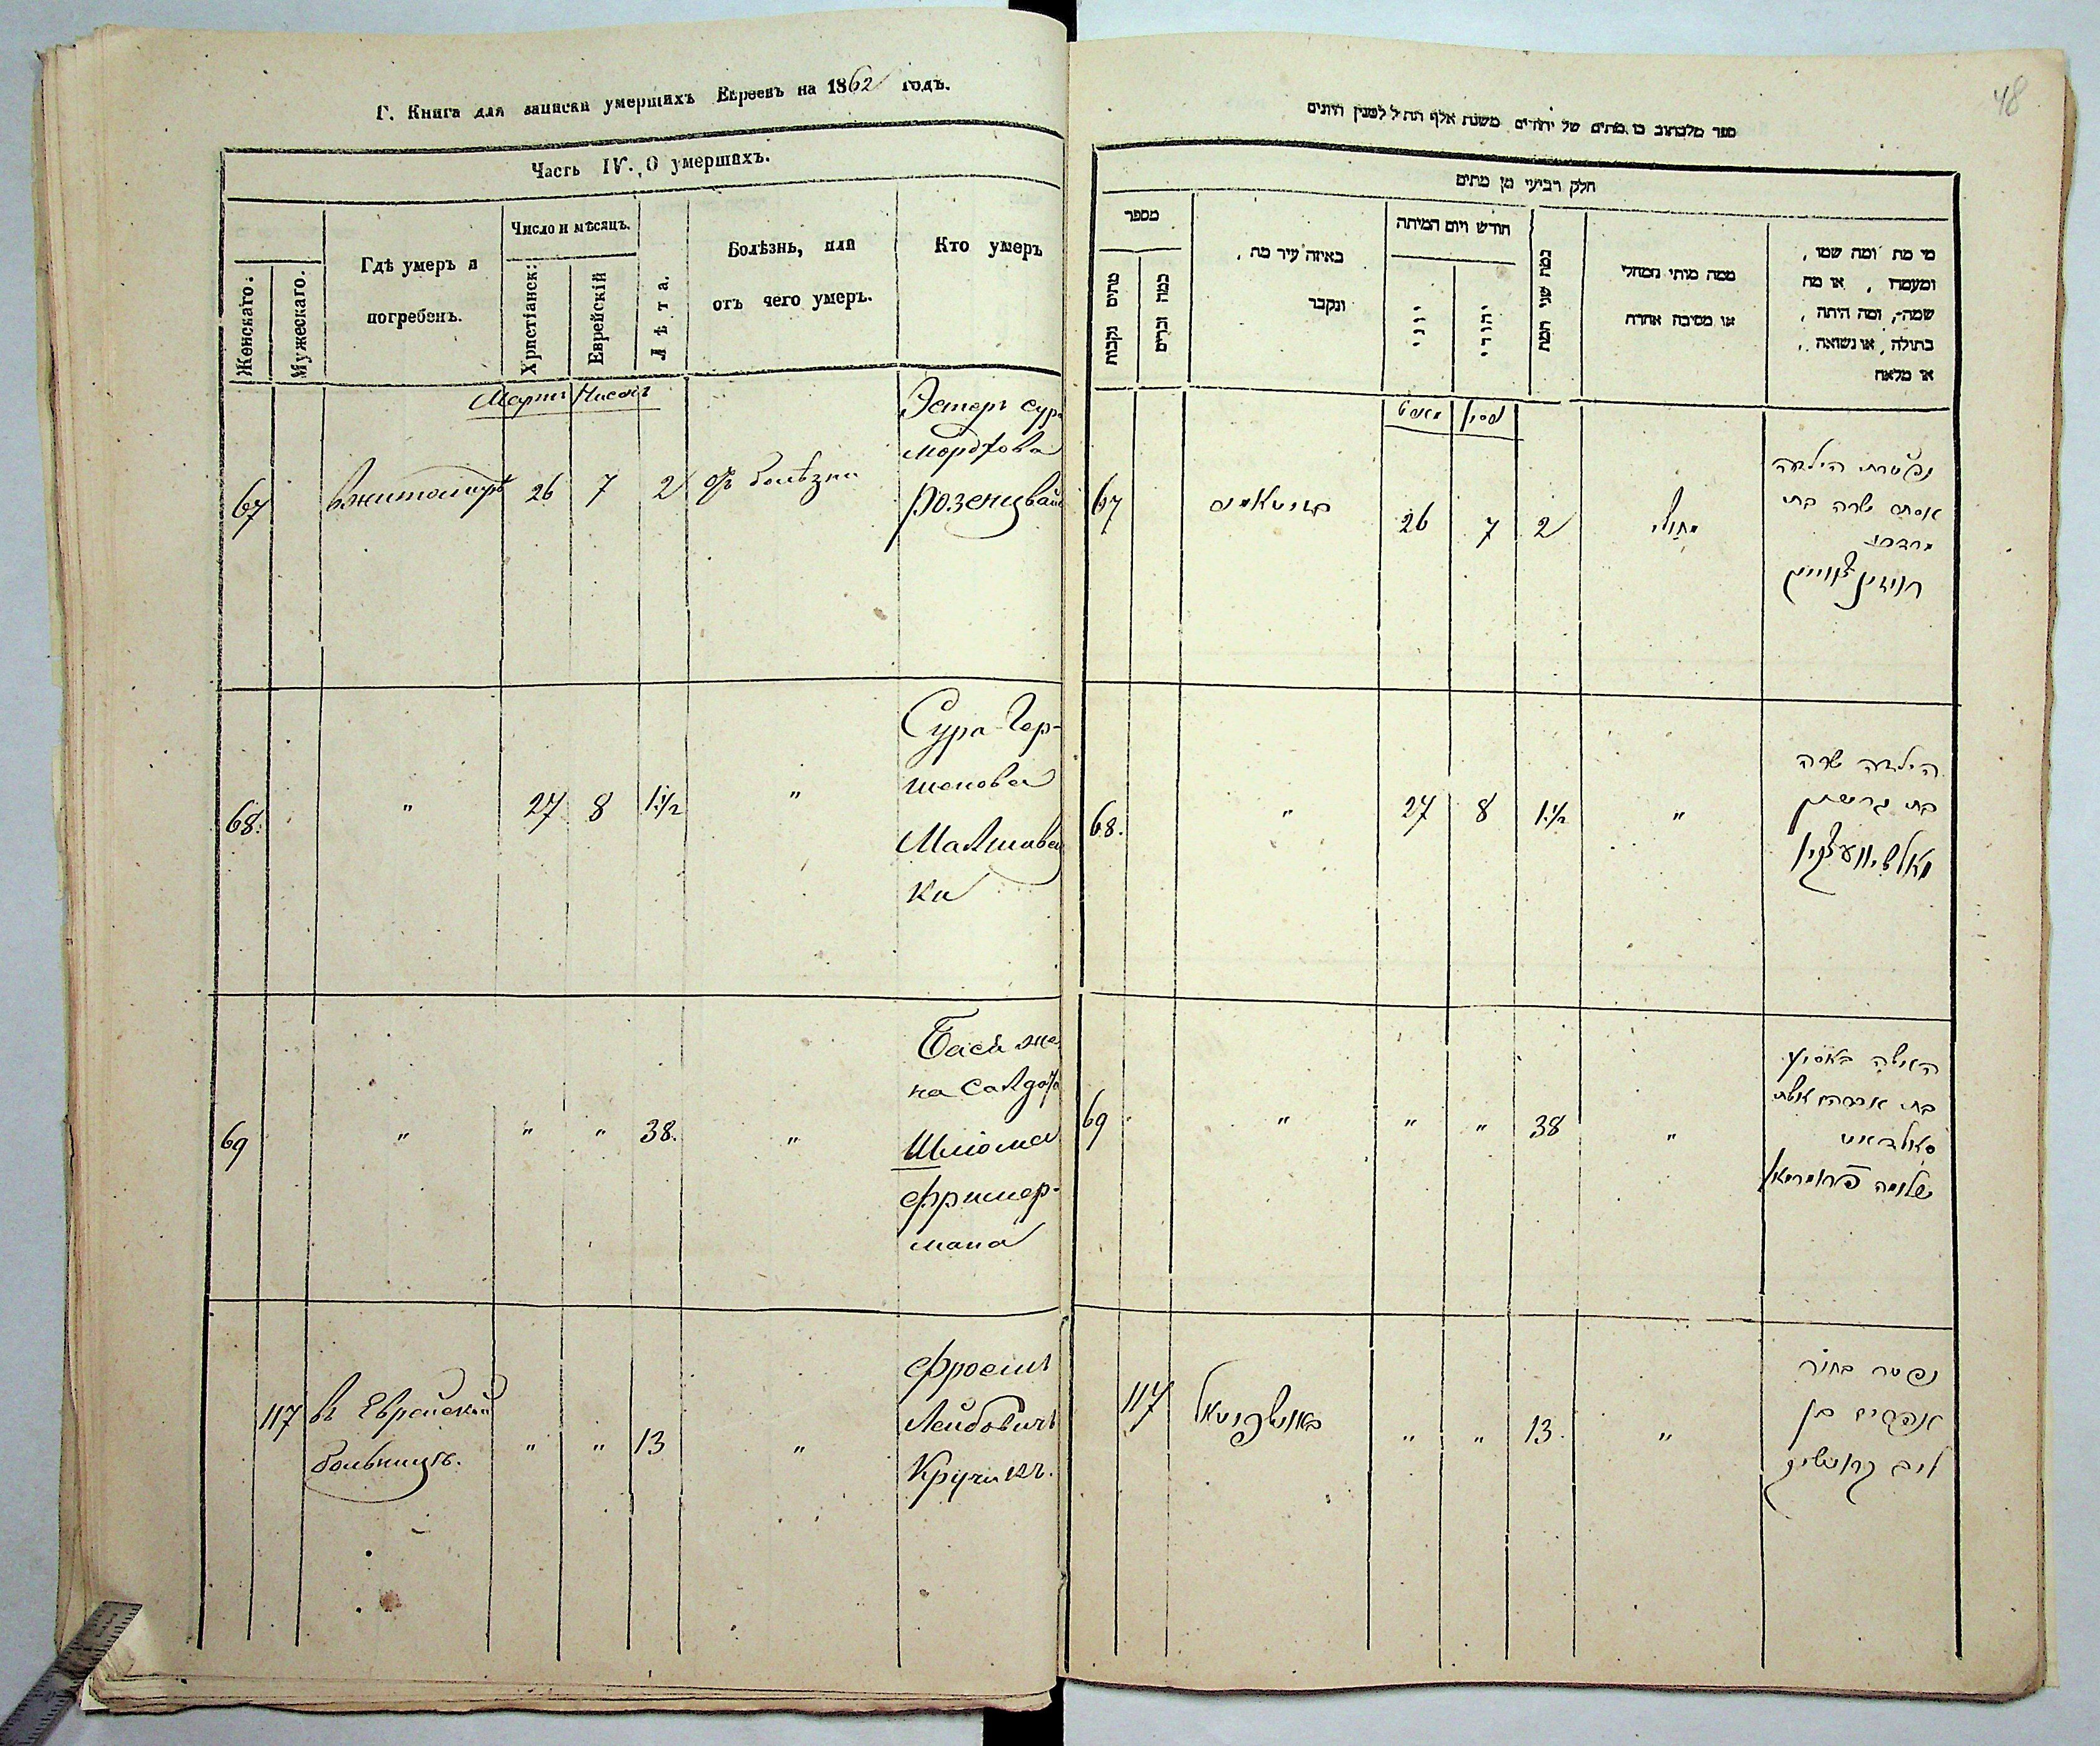 Г. Книга для записки умершихъ Евреевъ на 1862 годъ.
Часть IV. О умершихъ.
Женскаго.
Мужескаго.
Гдѣ умеръ и
погребенъ.
Число и мѣсяцъ.
Христіанск:
Еврейскій
Лѣта.
Болѣзнь, или
отъ чего умеръ.
Кто умеръ
Мартъ Нисонъ
67 Вжитомирѣ 26 7 2 отъ болѣзни
Эстеръ Сура
Мордхова
Розенцвайг
68. " 27 8 1 1/2 "
Сура Гер-
шонова
Малшивс
ки
69 " " " 38. "
Бася же
на Солдата
Шлiома
Фример-
мана
117 въ Еврейской
больницѣ.
" " 13 "
Фроемъ
Лейбовичъ
Кручикъ.
48
ספר מלכתוב בו מתים של יהודים משנת אלף תת"ל למנין היונים
חלק רביעי מן מתים
מספר
מתים נקבות
כמה זכרים
באיזה עיר מת,
ונקבר
חודש ויום המיתה
יווני
יהודי
כמה שני המת
ממה מיתי ממחלי
או מסיבה אחרת
מי מת ומה שמו,
ומעמדו, או מה
שמה, ומה היתה,
בתולה, או נשואה,
או מלאה
מארט ניסן
67 26 7 2 מחולי
נפטרת הילדה
אסתר שרה בת
מרדכי
רויזינצווייג
68. " 27 8 1 1/2 "
הילדה שרה
בת גרשון
מאלשיווצקי
69 " " " 38 "
האשה באסיע
בת אברהם אשת
סאלדאט
שלומה פרימירמאן
117 " " 13 "
נפטר בחור
אפרים בן
ליב קרוטשיק